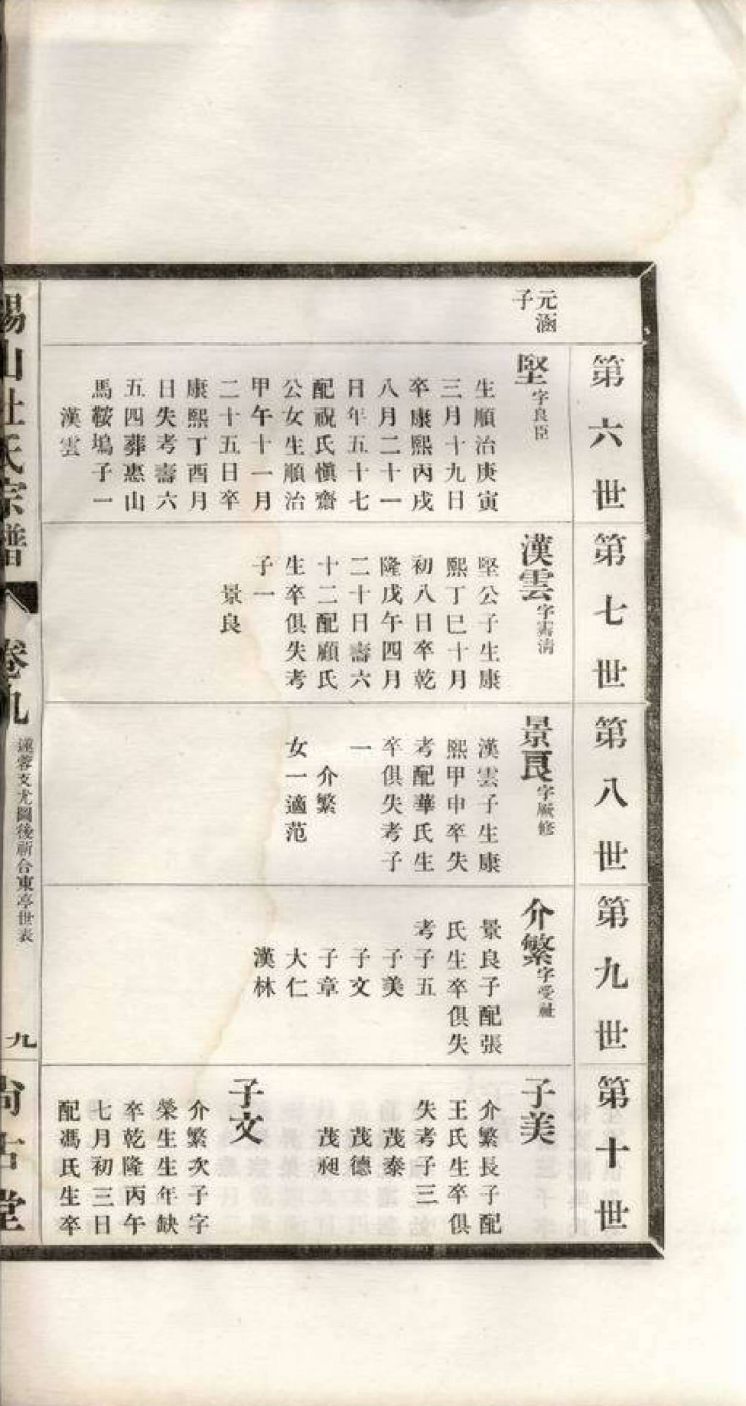 第六世
元涵
子
堅字良臣
生順治庚寅
三月十九日
卒康熙丙戌
八月二十一
日年五十七
配祝氏愼齋
公女生順治
甲午十一月
二十五日卒
康熙丁酉月
日失考壽六
五四葬惠山
馬鞍塢子一
漢雲
第七世
漢雲字霱清
堅公子生康
熙丁巳十月
初八日卒乾
隆戊午四月
二十日壽六
十二配顧氏
生卒俱失考
子一
景良
第八世
景良字厥修
漢雲子生康
熙甲申卒失
考配華氏生
卒俱失考子
一
介繁
女一適范
第九世
介繁字受祉
景良子配張
氏生卒俱失
考子五
子美
子文
子章
大仁
漢林
第十世
子美
介繁長子配
王氏生卒俱
失考子三
茂泰
茂德
茂昶
子文
介繁次子字
榮生生年缺
卒乾隆丙午
七月初三日
配馮氏生卒
錫山杜氏宗譜
卷九
蓮蓉支尤圖後祈合東亭世表
九
尚古堂